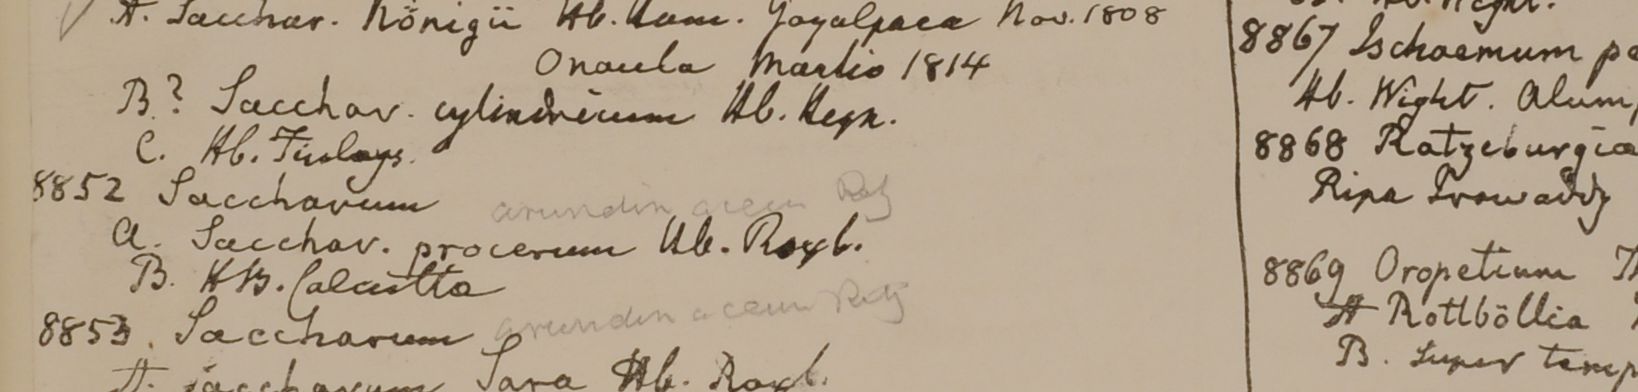 A. Sacchar. Königii Hb. Ham. Goyalpara Nov. 1808
Martio 1814
B? Sacchar. cylindricum Hb. Heyn.
C. Hb. Finlays.
8852 Saccharum arundinaceum Retz
a. Sacchar. procerum Hb. Roxb.
B. HB. Calcutta
8853. Saccharum arundinaceum Retz
A. Saccharum Sara Hb. Roxb.
Hb. Wight.
8867 Ischaemum
Hb. Wight.
8868 Ratzeburgia
Ripa Irawaddy
8869 Oropetium
A Rottböllia
B. super